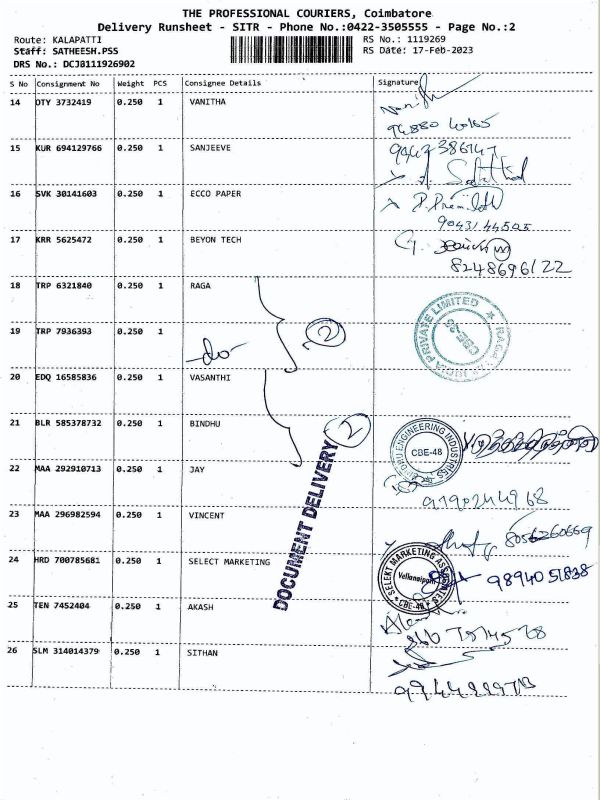 THE PROFESSIONAL COURIERS, Coimbatore
Delivery Runsheet - SITR - Phone No.:0422-3505555 - Page No.:2
Route: KALAPATTI
RS No.: 1119269
Staff: SATHEESH.PSS
RS Date: 17-Feb-2023
DRS No.: DCJ8111926902
S No Consignment No Weight PCS Consignee Details Signature
14 OTY 3732419 0.250 1 VANITHA
15 KUR 694129766 0.250 1 SANJEEVE
16 SVK 30141603 0.250 1 ECCO PAPER
9043144505
17 KRR 5625472 0.250 1 BEYON TECH
8248696122
18 TRP 6321840 0.250 1 RAGA
2
PRIVATE LIMITED
19 TRP 7936393 0.250 1
do
20 EDQ 16585836 0.250 1 VASANTHI
21 BLR 585378732 0.250 1 BINDHU
2
ENGINEERING INDUSTRIES
CBE-48
22 MAA 292910713 0.250 1 JAY
9190244968
DOCUMENT DELIVERY
23 MAA 296982594 0.250 1 VINCENT
8056260669
24 HRD 700785681 0.250 1 SELECT MARKETING
SELEKT MARKETING
CBE-48
9894051838
25 TEN 7452404 0.250 1 AKASH
26 SLM 314014379 0.250 1 SITHAN